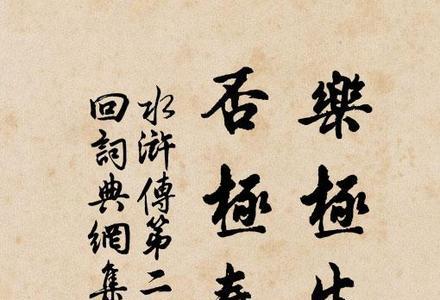 樂極生
否極泰
水滸傳第二
回詞典網集